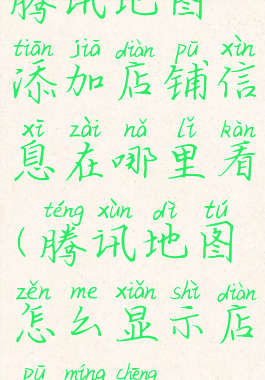 腾讯地图
tiān jiā diàn pū xìn
添加店铺信
xī zài nǎ lǐ kàn
息在哪里看
téng xùn dì tú
(腾讯地图
zěn me xiǎn shì diàn
怎么显示店
pū míng chēng